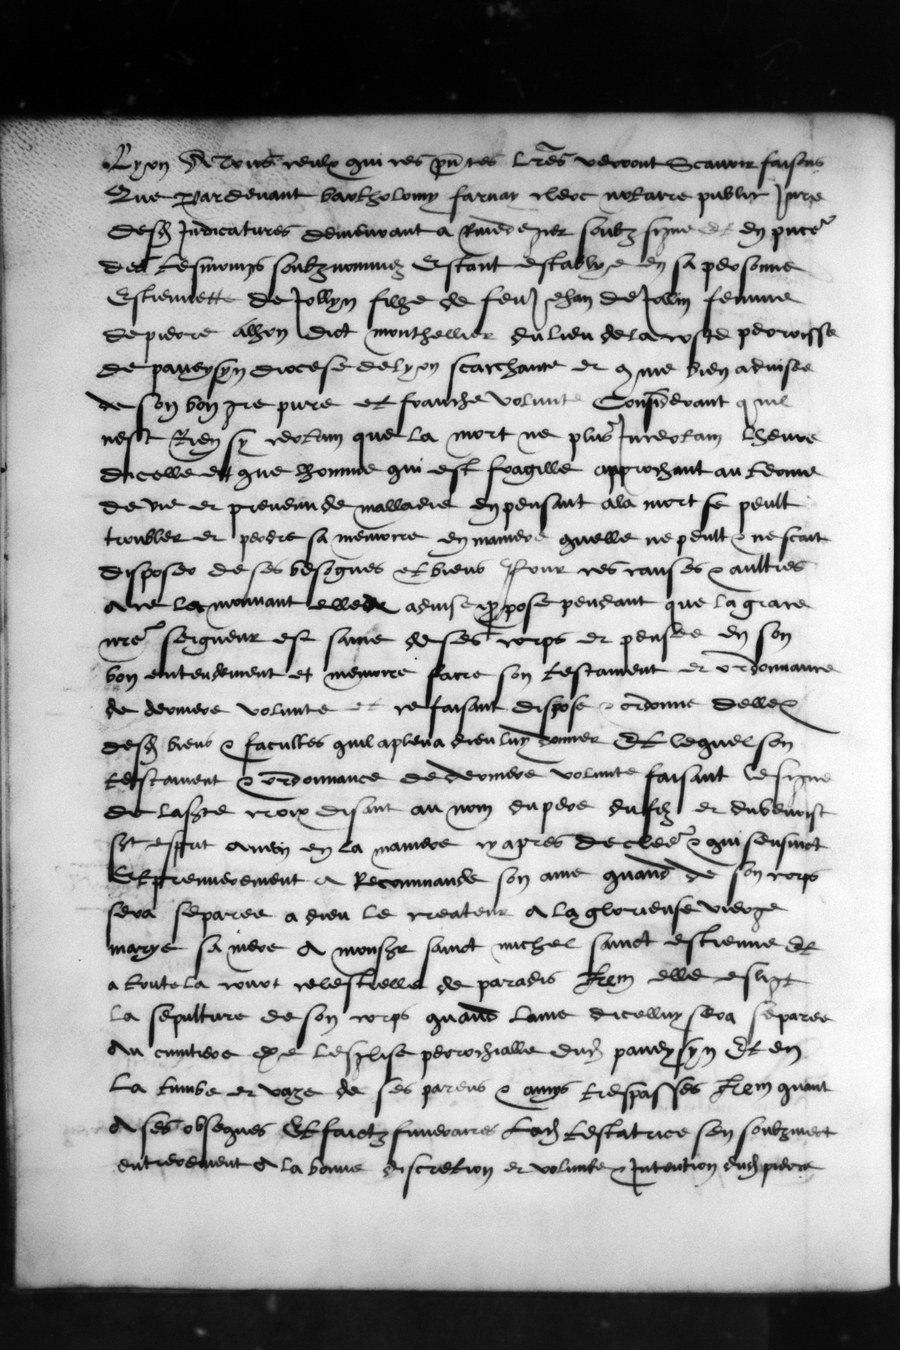 Lyon A Tous ceulx qui ces pntes lres verront Scavoir faisons
Que pardevant bartholomy farnay clerc notaire public Jure
desd Judicatures demeurant a soubz signe et en pnce
des tesmoings soubznommez Estant establye en sa personne
Estiennette de Jollyn fille de feu Jehan de Jollin femme
de pierre allyon dict monthellier du lieu de la coste perroisse
de paneysyn diocese de lyon scaichante et come bien advisee
de son bon gre pure et franche volunte Considerant quil
nest Rien sy certain que la mort ne plus Incertain lheure
dicelle et que lhomme qui est fragille approchant au terme
de vie et prevenu de malladie en pensant a la mort se peult
troubler et perdre sa memoire en maniere quelle ne peult & ne scait
disposer de ses besognes et biens Pour ces causes & aultres
a ce la mouvant elle advise ppose pendant que la grace
nre seigneur est saine de ses corps et pensee en son
bon entendement et memoire faire son testament et ordonnance
de derniere volunte et ce faisant dispose & ordonne delle
desd biens & facultes quil a pleu a dieu luy donner Et lequel son
testament & ordonnance de derniere volunte faisant le signe
de la ste croix disant au nom du pere du filz et du benoist
st esprit amen en la maniere cy apres declee & qui sensuict
Et premierement a Recommande son ame quand de son corps
sera separee a dieu le createur A la glorieuse vierge
marye sa mere A monsgr sainct michel sainct estienne Et
a toute la court celestielle de paradis Item elle eslyt
la sepulture de son corps quand lame dicelluy sera separee
Au cimitiere de leglise perrochialle dud paneysyn Et en
la tumbe et vaze de ses parens & amys trespasses Item quant
A ses obseques Et faictz funeraires lad testatrice sen soubzmect
entierement A la bonne discretion et volunte & Intention dud pierre